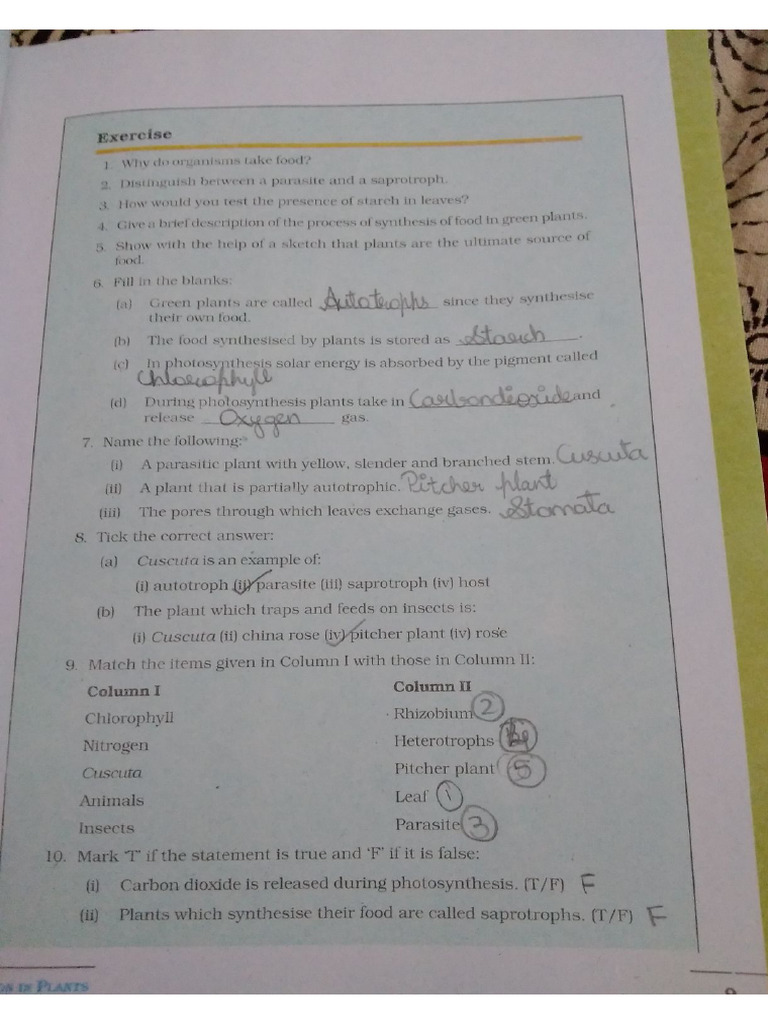 Exercise
1. Why do organisms take food?
2. Distinguish between a parasite and a saprotroph.
3. How would you test the presence of starch in leaves?
4. Give a brief description of the process of synthesis of food in green plants.
5. Show with the help of a sketch that plants are the ultimate source of
food.
6. Fill in the blanks:
(a) Green plants are called Autotrophs since they synthesise
their own food.
(b) The food synthesised by plants is stored as Starch.
(c) In photosynthesis solar energy is absorbed by the pigment called
Chlorophyll
(d) During photosynthesis plants take in Carbondioxide and
release Oxygen gas.
7. Name the following:
(i) A parasitic plant with yellow, slender and branched stem. Cuscuta
(ii) A plant that is partially autotrophic. Pitcher plant
(iii) The pores through which leaves exchange gases. Stomata
8. Tick the correct answer:
(a) Cuscuta is an example of:
(i) autotroph (ii) parasite (iii) saprotroph (iv) host
(b) The plant which traps and feeds on insects is:
(i) Cuscuta (ii) china rose (iv) pitcher plant (iv) rose
9. Match the items given in Column I with those in Column II:
Column I Column II
Chlorophyll Rhizobium 2
Nitrogen Heterotrophs 4
Cuscuta Pitcher plant 5
Animals Leaf 1
Insects Parasite 3
10. Mark 'T' if the statement is true and 'F' if it is false:
(i) Carbon dioxide is released during photosynthesis. (T/F) F
(ii) Plants which synthesise their food are called saprotrophs. (T/F) F
ON IN PLANTS